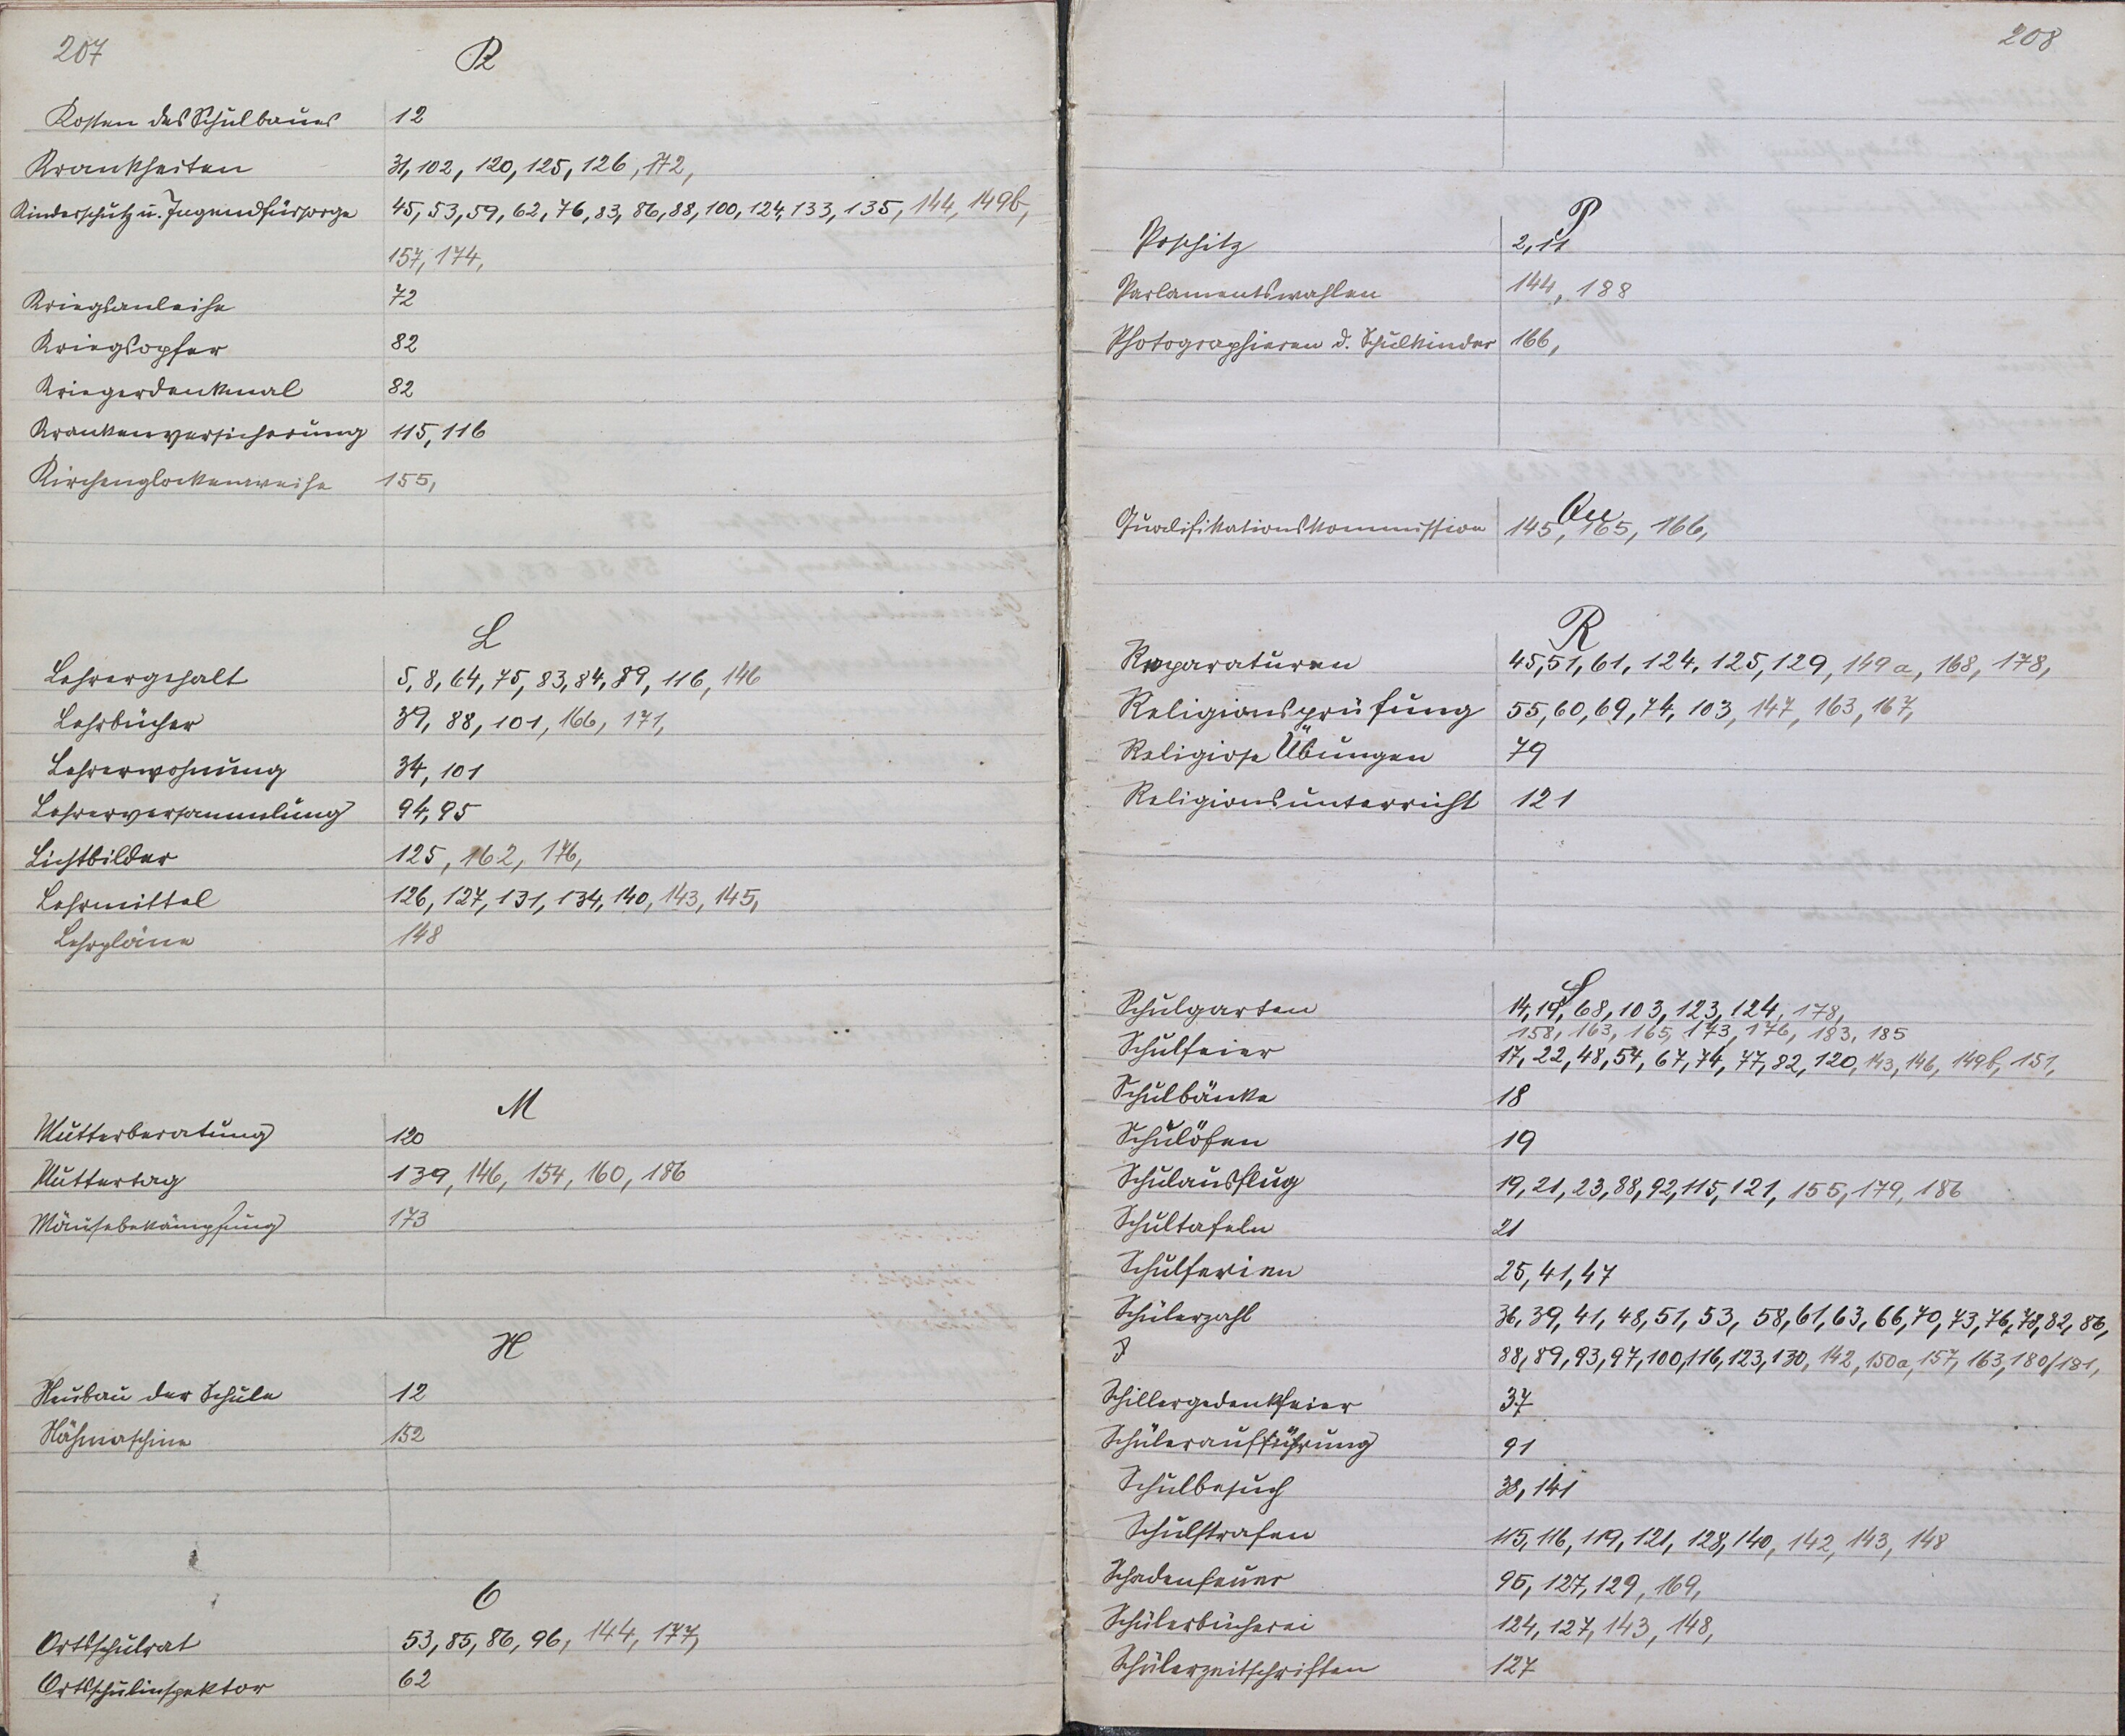 207
K
Kosten des Schulbaues 12
Krankheiten 31, 102, 120, 125, 126, 172,
Kinderschutz u. Jugendfürsorge 45, 53, 59, 62, 76, 83, 86, 88, 100, 124, 133, 135, 144, 149b,
157, 174,
Kriegsanleihe 72
Kriegsopfer 82
Kriegerdenkmal 82
Krankenversicherung 115, 116
Kirchenglockenweihe 155,
L
Lehrergehalt 5, 8, 64, 75, 83, 84, 89, 116, 146
Lehrbücher 39, 88, 101, 166, 171,
Lehrerwohnung 34, 101
Lehrerversammlung 94, 95
Lichtbilder 125, 162, 176,
Lehrmittel 126, 127, 131, 134, 140, 143, 145,
Lehrpläne 148
M
Mutterberatung 120
Muttertag 139, 146, 154, 160, 186
Mäusebekämpfung 173
N
Neubau der Schule 12
Nähmaschine 152
O
Ortsschulrat 53, 85, 86, 96, 144, 177,
Ortsschulinspektor 62
208
P
Poschitz 2, 11
Parlamentswahlen 144, 188
Photographieren d. Schulkinder 166,
Qu
Qualifikationskommission 145, 165, 166,
R
Reparaturen 45, 51, 61, 124, 125, 129, 149a, 168, 178,
Religionsprüfung 55, 60, 69, 74, 103, 147, 163, 167,
Religiöse Übungen 79
Religionsunterricht 121
S
Schulgarten 14, 19, 68, 103, 123, 124, 178,
158, 163, 165, 173, 176, 183, 185
Schulfeier 17, 22, 48, 54, 67, 74, 77, 82, 120, 143, 146, 149b, 151,
Schulbänke 18
Schulöfen 19
Schulausflug 19, 21, 23, 88, 92, 115, 121, 155, 179, 186
Schultafeln 21
Schulferien 25, 41, 47
Schülerzahl 36, 39, 41, 48, 51, 53, 58, 61, 63, 66, 70, 73, 76, 78, 82, 86,
88, 89, 93, 97, 100, 116, 123, 130, 142, 150a, 157, 163, 180/181,
Schillergedenkfeier 37
Schüleraufführung 91
Schulbesuch 38, 141
Schulstrafen 115, 116, 119, 121, 128, 140, 142, 143, 148
Schadenfeuer 95, 127, 129, 169,
Schülerbücherei 124, 127, 143, 148,
Schülerzeitschriften 127